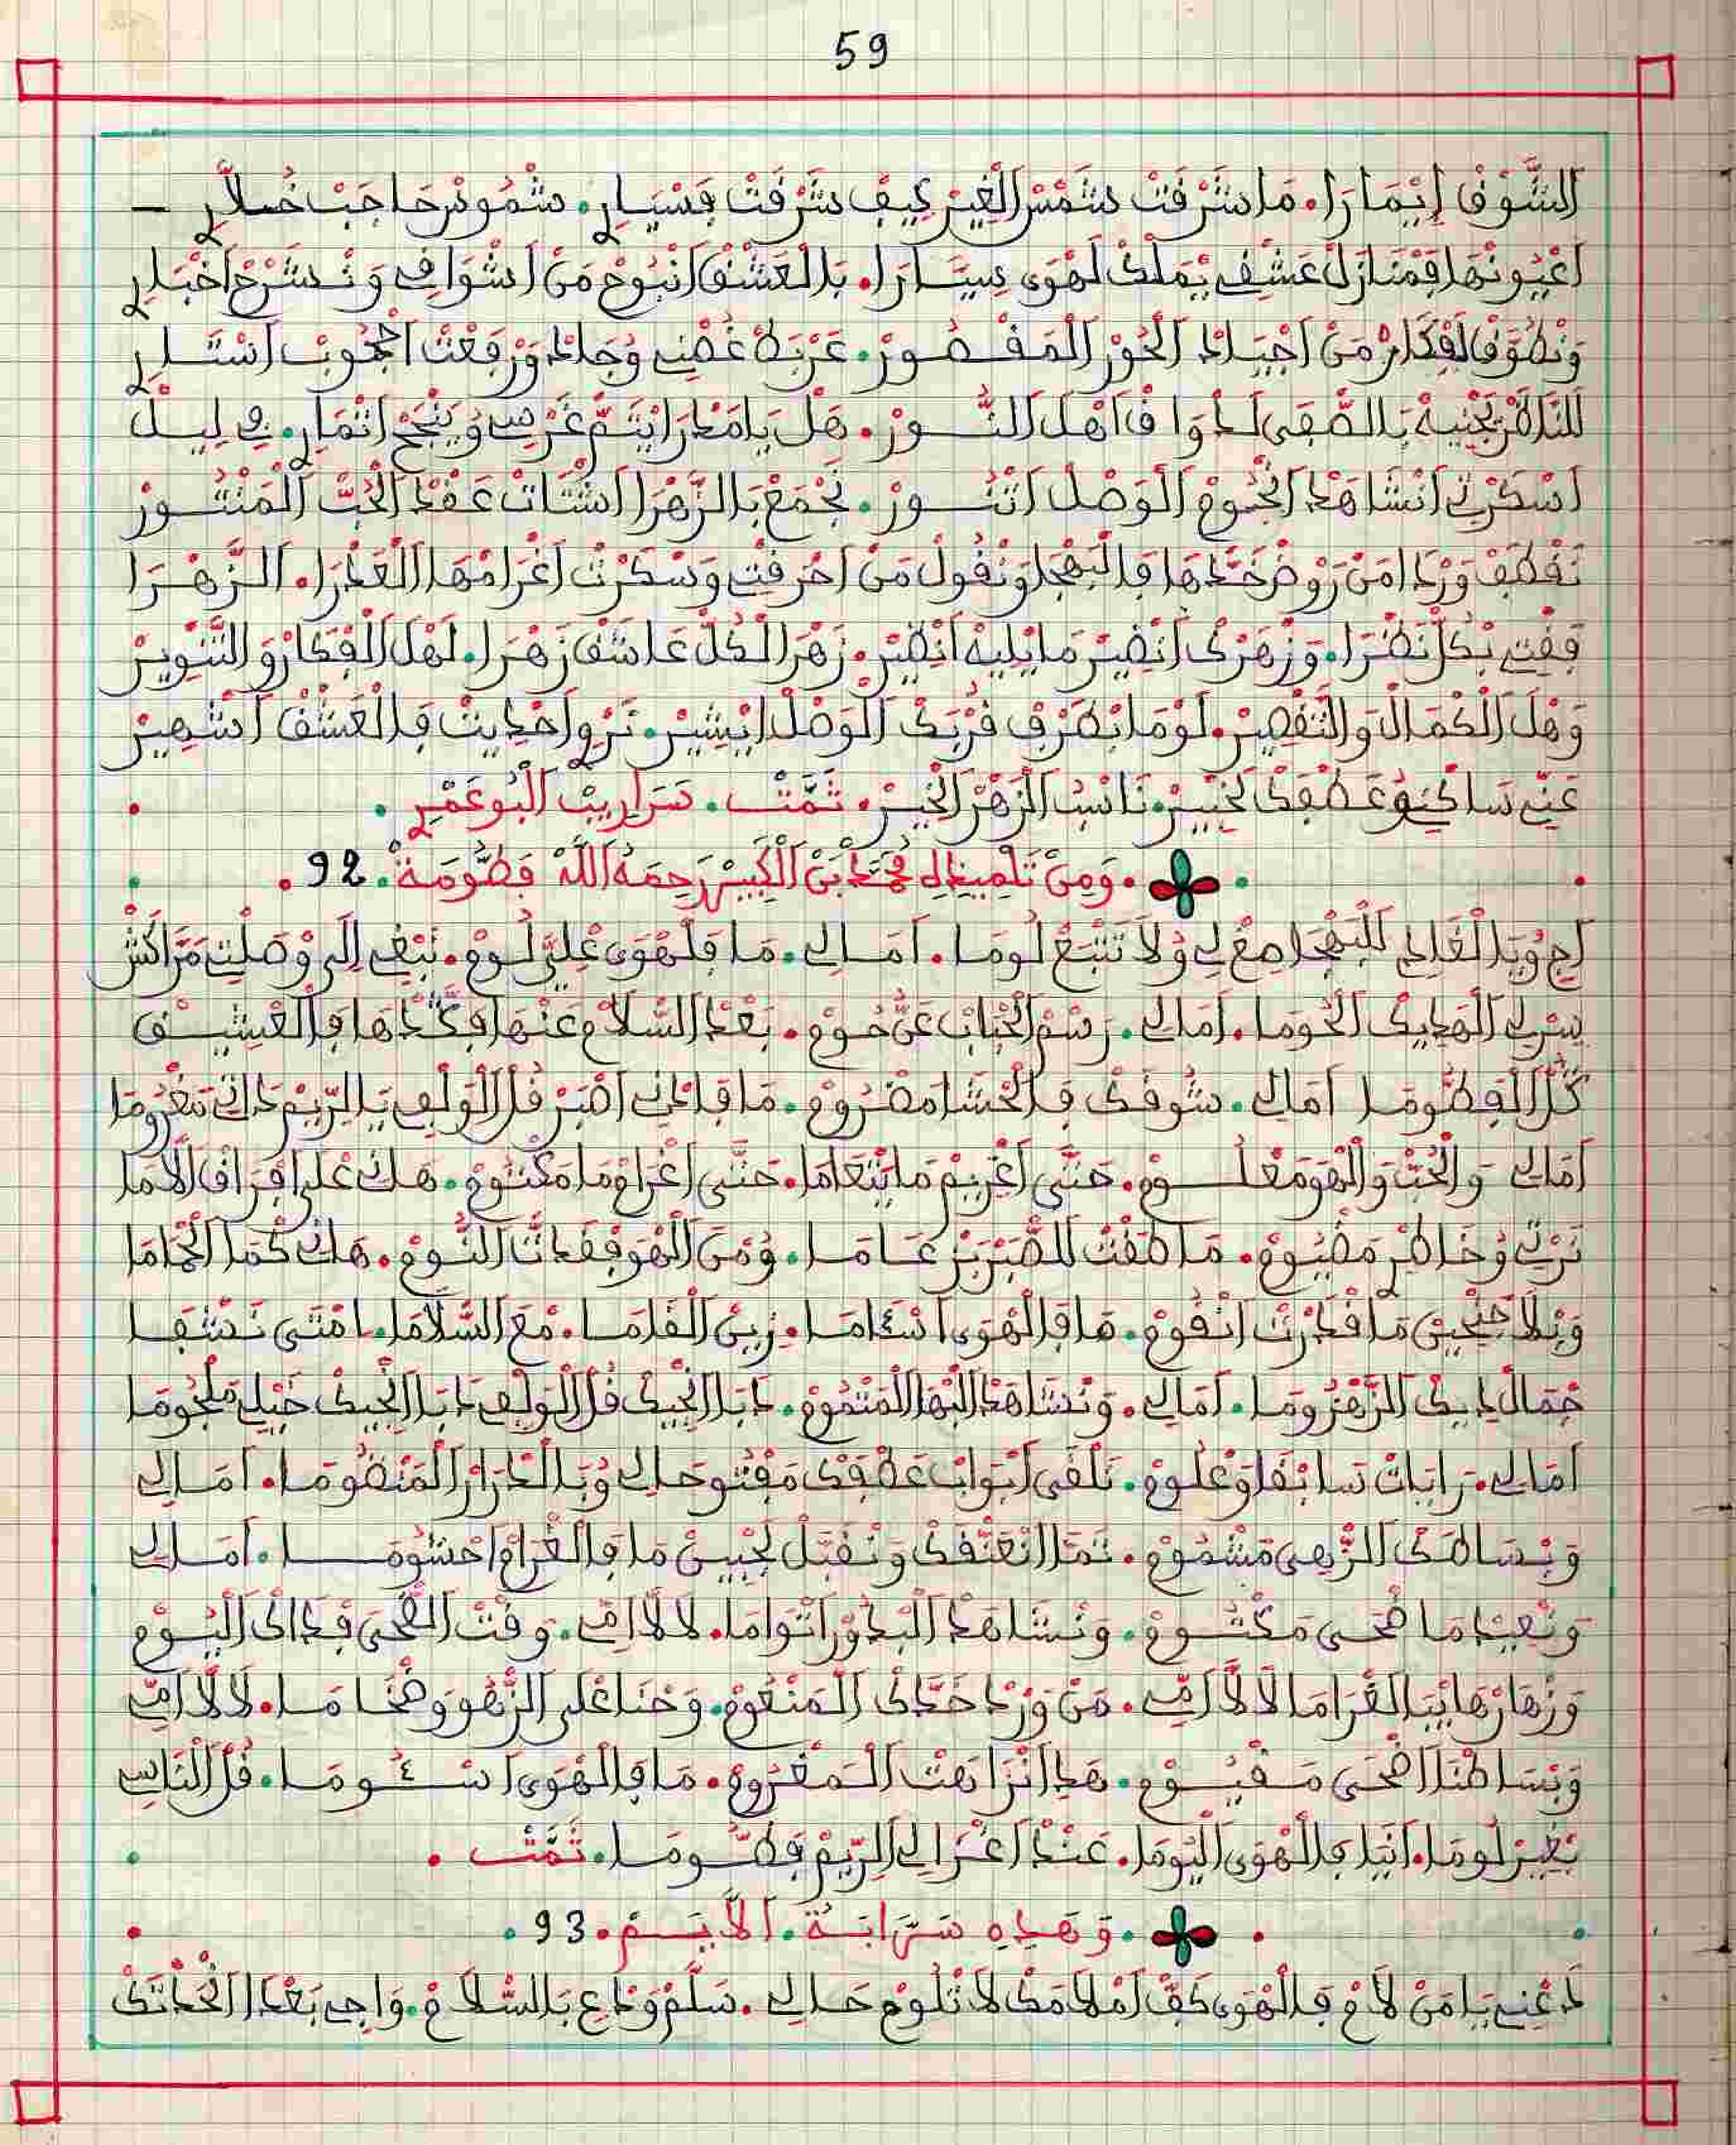 59
اَلشُّوْقْ إِيْمَارَا. مَا شَرْقَتْ شَمْسْ اَلْغِيرْ كِيفْ شَرْقَتْ فَسْيَارِ. شْمُوسْ حَاجَبْ خُلاَّرِ —
اَعْيُونْهَا فَمْنَازَلْ عَشْقِي يَمْلَكْ لَهْوَى سِيَّارَا. بَالْعَشْقْ اَنْبُوحْ مَنْ اَشْوَاقِي وَنْشَرَّحْ اَخْبَارِ
وَنْطُوفْ اَلْفْكَارْ مَنْ اَجْيَادْ اَلْحُورْ اَلْمَقْصُورْ. عَرْبَدْ غُصْنِي وُجَادْ وَرْفَعْتْ اَحْجُوبْ اَسْتَارِ
بَالصّْفَى اَهْلْ النُّورْ. هَلْ يَا مَدْرَا يْتَمّْ غَرْسِي وْيَنْجَحْ اَثْمَارِ. فِي لِيلْ
اَسْكَرْنِي اَنْشَاهَدْ اَنْجُومْ اَلْوَصْلْ اَتْنُورْ. نَجْمَعْ بَالزَّهْرَا اَشْتَاتْ عَقْدْ اَلْحُبّْ اَلْمَنْثُورْ
نَقْطَفْ وَرْدَا مَنْ رُوضْ خَدّْهَا فَالْبَهْجَا وَنْقُولْ مَنْ اَحْرَقْتِي وَسْكَرْتْ اَغْرَامْهَا الْعَدْرَا. اَلزَّهْرَا
فِقْتِي بْكُلّْ نَضْرَا. وَزْهَرْكْ اَنْضِيرْ مَا يْلِيهْ اَنْضِيرْ. زَهْرَا لْكُلّْ عَاشَقْ زَهْرَا. لَهْلْ اَلْفْكَارْ وَالتَّنْوِيرْ
وَهْلْ اَلْكْمَالْ وَالتَّقْصِيرْ. لَوْمَا بْصَرْفِ قُرْبَكْ اَلْوَصْلْ اِيْشِيرْ. نَرْوِ اَحْدِيثْ فَالْعَشْقْ اَشْهِيرْ
عَنِّي سَاكْنُو عَطْفَكْ لَخْبِيرْ. نَاسْ اَلزَّهْرْ اَلْخِيرْ. تَمَّتْ. سَرَارِيبْ اَلْبُوعَمْرِ.
. وَمِنْ تَلْمِيذِهِ مُحَمَّدْ بَنْ اَلْكَبِيرْ رَحِمَهُ اَللَّهْ فَطُّومَةْ. 92.
اَجِ وُيَا الْغَادِي لَلْبَهْجَا صْغْ لِي وُلاَ تَتْبَعْ لُومَا. اَمَالِي. مَا فَلْهْوَى عْلِيَّ لُومْ. نَبْغِي إِلَى وْصَلْتِي مَرَّاكَشْ
سِرْ لِي اَلْهَدِيكْ اَلْحُومَا. اَمَالِي. رَسْمْ اَلْحْبَابْ عَنّْ حُومْ. بَعْدْ السّْلاَمْ عَنْهَا فَكَّدْهَا فَالْعْشِيقْ
كُلّْ اَلْفَطُّومَا اَمَالِي. شُوقَكْ فَالْحْشَا مَضْرُومْ. مَا فَادْنِي اَصْبَرْ قُلْ اَلْوَلْفِي يَا الرِّيمْ دَانِي مَغْرُومَا
اَمَالِي وَالْحُبّْ وَالْهْوَ مَعْلُومْ. حَتَّى اَغْرِيمْ مَا يَتْعَامَا. حَتَّى اَغْرَامْ مَا مَكْتُومْ. هَكْ عْلَى اَفْرَاقْ اَلاَمَا
نَرْثِي وُخَاطْرِ مَضْيُومْ. مَا طَقْتْ لَلصّْبَرْ بَرْ عَامَا. وُمْنَ اَلْهْوَ فَقْدَاتْ النُّومْ. هَكْ كْمَا اَلْحْمَامَا
وَبْلاَ جْنْحِينْ مَا قْدَرْتْ اَنْقُومْ. مَا فَالْهْوَى اَسْئَامَا. زِينْ اَلْقَامَا. مْعَ السّْلاَمَا. اَمْتَى نَشْفَى
جْمَالْ دِيكْ اَلزَّهْزُومَا. اَمَالِي. وَنْشَاهَدْ اَلْبْهَا اَلْمَتْمُومْ. دَابَا اَنْجِيكْ قُلْ اَلْوَلْفِي دَابَا اَنْجِيكْ خَيْلِي مَلْجُومَا
اَمَالِي. رَايَاتْ سَابْقَا وَعْلُومْ. نَلْقَى اَبْوَابْ عَطْفَكْ مَفْتُوحَا لِي وُبَالْدْرَارْ اَلْمَنْضُومَا. اَمَالِي
وَبْسَاطَكْ اَلزّْهِي مَشْمُومْ. تَمَّا اَنْعَنّْقَكْ وَنْقَبَّلْ لَجْبِينْ مَا فَالْغْرَامْ اَحْشُومَا. اَمَالِي
وَنْعِيدْ مَا ضْحَى مَكْتُومْ. وَنْشَاهَدْ اَلْبْدُورْ اَتْوَامَا. لاَلاَّ اَمِّي. وَقْتْ الضّْحَى فْدَاكْ اَلْيُومْ
وَزْهَارْهَا يْبَا الْغْرَامَا لاَلاَّ اَمِّي. مَنْ وَرْدْ خَدَّكْ اَلْمَنْعُومْ. وَحْنَا عْلَى اَلزّْهُو وَضْخَامَا. لاَلاَّ اَمِّي
وَبْسَاطْنَا اَضْحَى مَقْيُومْ. هَدَا اَنْزَاهْتْ اَلْمَغْرُومْ. مَا فَالْهْوَى اَسْئُومَا. قُلْ اَلنَّاسِي
بْغِيرْ لُومَا. اَنَايَا فَالْهْوَى اَلْيُومَا. عَنْدْ اَغْزَالِي اَلرِّيمْ فَطُّومَا. تَمَّتْ.
. وَهَذِهِ سَرَّابَةْ. اَلاَّيَمْ. 93.
دَعْنِي يَا مَنْ لاَمْ فَالْهْوَى كَفّْ اَمْلاَمَكْ لاَ تْلُومْ حَالِي. سَلَّمْ وَدْعِ بَالسّْلاَمْ. وَاجِي بَعْدَا اَلْحْدَاتَكْ